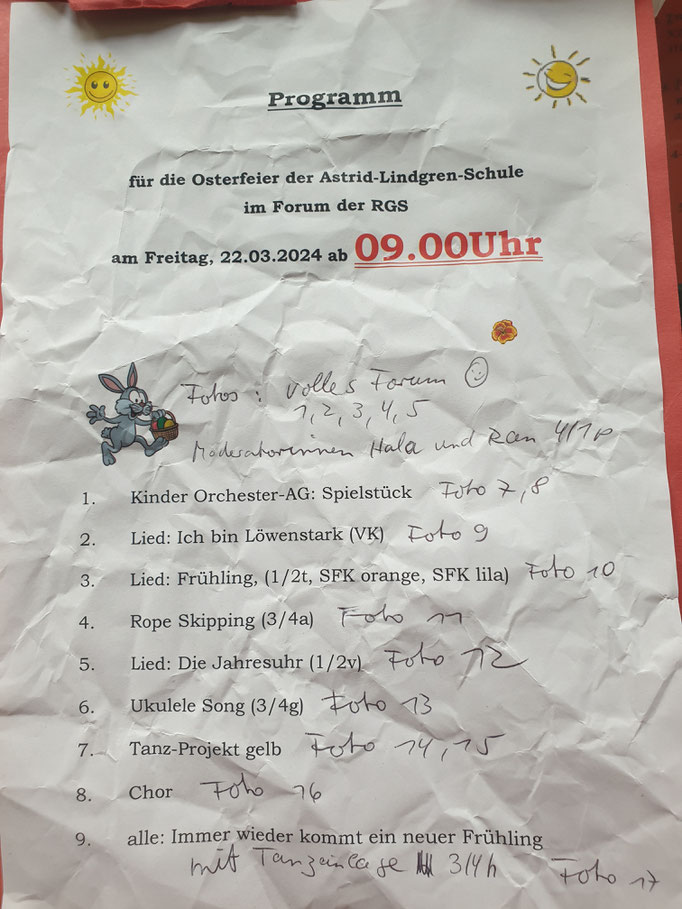 Programm
für die Osterfeier der Astrid-Lindgren-Schule
im Forum der RGS
am Freitag, 22.03.2024 ab 09.00Uhr
Fotos: volles Forum
1, 2, 3, 4, 5
Moderatorinnen Hala und
1. Kinder Orchester-AG: Spielstück Foto 7, 8
2. Lied: Ich bin Löwenstark (VK) Foto 9
3. Lied: Frühling, (1/2t, SFK orange, SFK lila) Foto 10
4. Rope Skipping (3/4a) Foto 11
5. Lied: Die Jahresuhr (1/2v) Foto 12
6. Ukulele Song (3/4g) Foto 13
7. Tanz-Projekt gelb Foto 14, 15
8. Chor Foto 16
9. alle: Immer wieder kommt ein neuer Frühling
mit Tanzeinlage 3/4h Foto 17